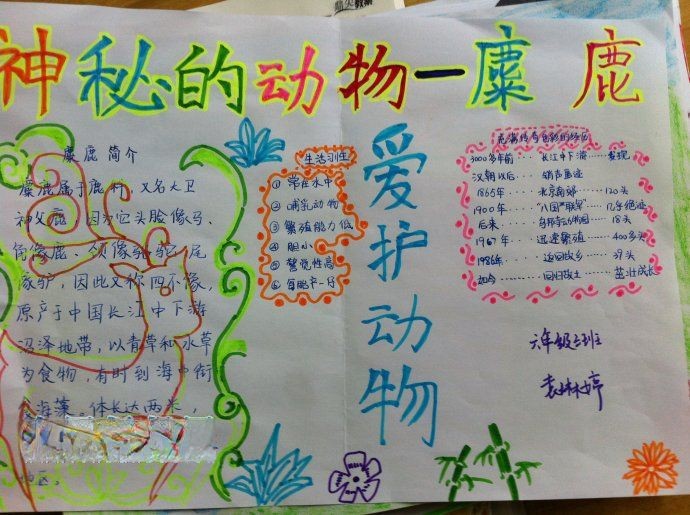 神秘的动物一麋鹿
麋鹿简介
麋鹿属于鹿科，又名大卫
神父鹿，因为它头脸像马、
角像鹿、颈像骆驼、尾
像驴，因此又称四不像，
原产于中国长江中下游
沼泽地带，以青草和水草
为食物，有时到海中衔
食海藻。体长达两米，
生活习性
① 常在水中
② 哺乳动物
③ 繁殖能力低
④ 胆小
⑤ 警觉性高
⑥ 每胎产一仔
爱护动物
充满传奇色彩的经历
3000多年前····长江中下游······发现
汉朝以后····销声匿迹
1865年·····北京南郊·····120头
1900年····"八国"联军····几乎绝迹
后来·····乌邦寺公园·····18头
1967年····迅速繁殖·····400多头
1986年·····返回故乡·····39头
如今·····回归故土·····茁壮成长
六年级三班
袁琳婷